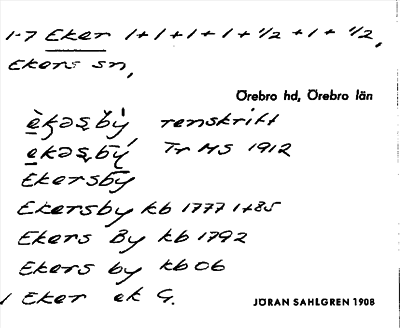 1-7 Eker 1+1+1+1+1/2+1+1/2,
Ekers sn,
Örebro hd, Örebro län
renskrift
Tr MS 1912
Ekersby
Ekersby kb 1777 1+85
Ekers By kb 1792
Ekers by kb 06
1 Eker ek G.
JÖRAN SAHLGREN 1908